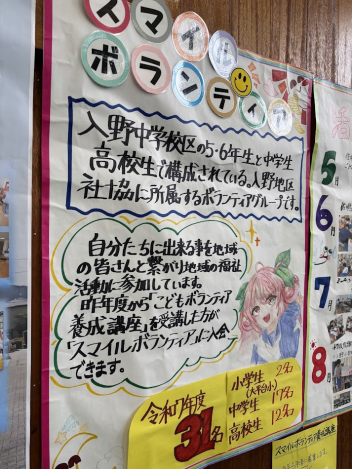 スマイル
ボランティア
入野中学校区の5・6年生と中学生
高校生で構成されている。入野地区
社協に所属するボランティアグループです。
自分たちに出来る事を地域
の皆さんと繋がり地域の福祉
活動に参加しています。
昨年度から「こどもボランティア
養成講座」を受講した方が
「スマイルボランティア」に入会
できます。
令和7年度
31名
小学生 2名
(大平台小)
中学生 17名
高校生 12名
5
月
6
月
7
月
8
月
スマイルボランティア養成講座